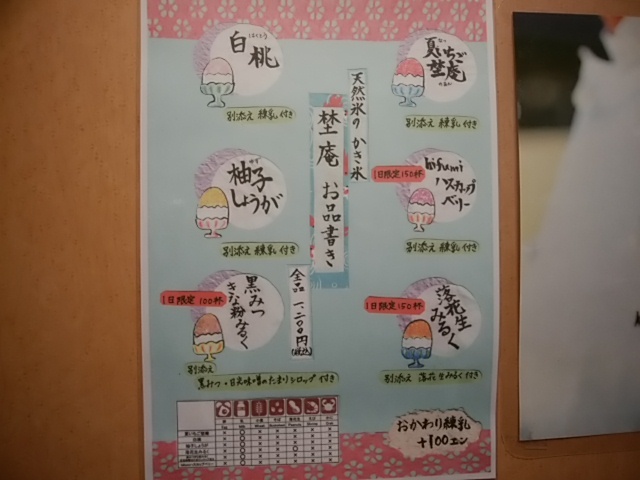 天然氷の かき氷
埜庵 お品書き
全品 一、二〇〇円
(税込)
夏いちご
埜庵
別添え 練乳 付き
hifumi
ハスカップ
ベリー
1日限定150杯
別添え 練乳 付き
落花生
みるく
1日限定150杯
別添え 落花生みるく付き
白桃
はくとう
別添え 練乳 付き
柚子
ゆず
しょうが
別添え 練乳 付き
黒みつ
きな粉みるく
1日限定 100杯
別添え
黒みつ・日光味噌のたまりシロップ 付き
おかわり練乳
+100エン